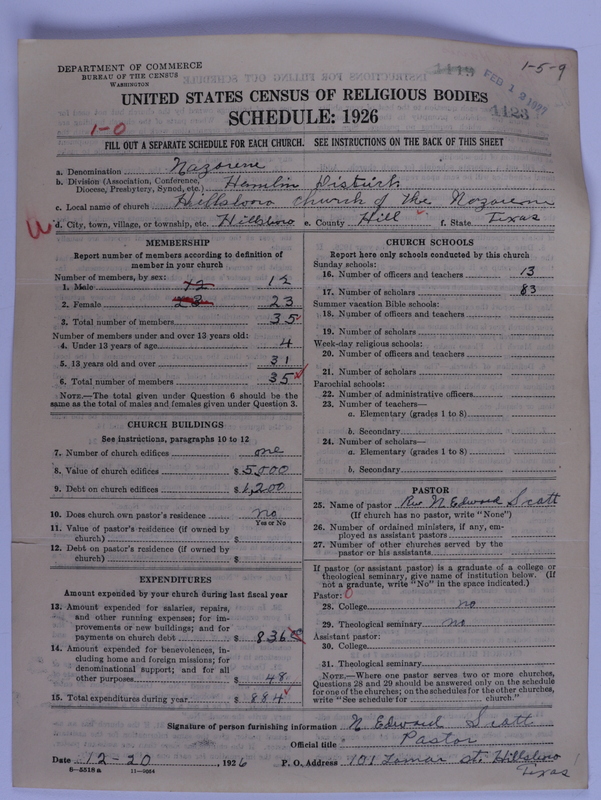 DEPARTMENT OF COMMERCE
BUREAU OF THE CENSUS
WASHINGTON
1-5-9
FEB 12 1927
1123
UNITED STATES CENSUS OF RELIGIOUS BODIES
SCHEDULE: 1926
1-0
FILL OUT A SEPARATE SCHEDULE FOR EACH CHURCH. SEE INSTRUCTIONS ON THE BACK OF THIS SHEET
a. Denomination Nazarene
b. Division (Association, Conference, Diocese, Presbytery, Synod, etc.) Hamlin District
c. Local name of church Hillsboro Church of the Nazarene
d. City, town, village, or township, etc. Hillsboro e. County Hill f. State Texas
MEMBERSHIP
Report number of members according to definition of
member in your church
Number of members, by sex:
1. Male 12 12
2. Female 23 23
3. Total number of members 35
Number of members under and over 13 years old:
4. Under 13 years of age 4
5. 13 years old and over 31
6. Total number of members 35
NOTE.—The total given under Question 6 should be the
same as the total of males and females given under Question 3.
CHURCH BUILDINGS
See instructions, paragraphs 10 to 12
7. Number of church edifices one
8. Value of church edifices $ 5,000
9. Debt on church edifices $ 1,200
10. Does church own pastor's residence no
Yes or No
11. Value of pastor's residence (if owned by
church) $
12. Debt on pastor's residence (if owned by
church) $
EXPENDITURES
Amount expended by your church during last fiscal year
13. Amount expended for salaries, repairs,
and other running expenses; for im-
provements or new buildings; and for
payments on church debt $ 836
14. Amount expended for benevolences, in-
cluding home and foreign missions; for
denominational support; and for all
other purposes $ 48
15. Total expenditures during year $ 884
CHURCH SCHOOLS
Report here only schools conducted by this church
Sunday schools:
16. Number of officers and teachers 13
17. Number of scholars 83
Summer vacation Bible schools:
18. Number of officers and teachers
19. Number of scholars
Week-day religious schools:
20. Number of officers and teachers
21. Number of scholars
Parochial schools:
22. Number of administrative officers
23. Number of teachers—
a. Elementary (grades 1 to 8)
b. Secondary
24. Number of scholars—
a. Elementary (grades 1 to 8)
b. Secondary
PASTOR
25. Name of pastor Rev. N Edward Scatt
(If church has no pastor, write "None")
26. Number of ordained ministers, if any, em-
ployed as assistant pastors
27. Number of other churches served by the
pastor or his assistants
If pastor (or assistant pastor) is a graduate of a college or
theological seminary, give name of institution below. (If
not a graduate, write "No" in the space indicated.)
Pastor: 0
28. College no
29. Theological seminary no
Assistant pastor:
30. College
31. Theological seminary
NOTE.—Where one pastor serves two or more churches,
Questions 28 and 29 should be answered only on the schedule
for one of the churches; on the schedules for the other churches,
write "See schedule for church."
Signature of person furnishing information N Edward Scatt
Official title Pastor
Date 12-20, 1926 P. O. Address 101 Lamar St. Hillsboro
Texas
6—5518a 11—9064